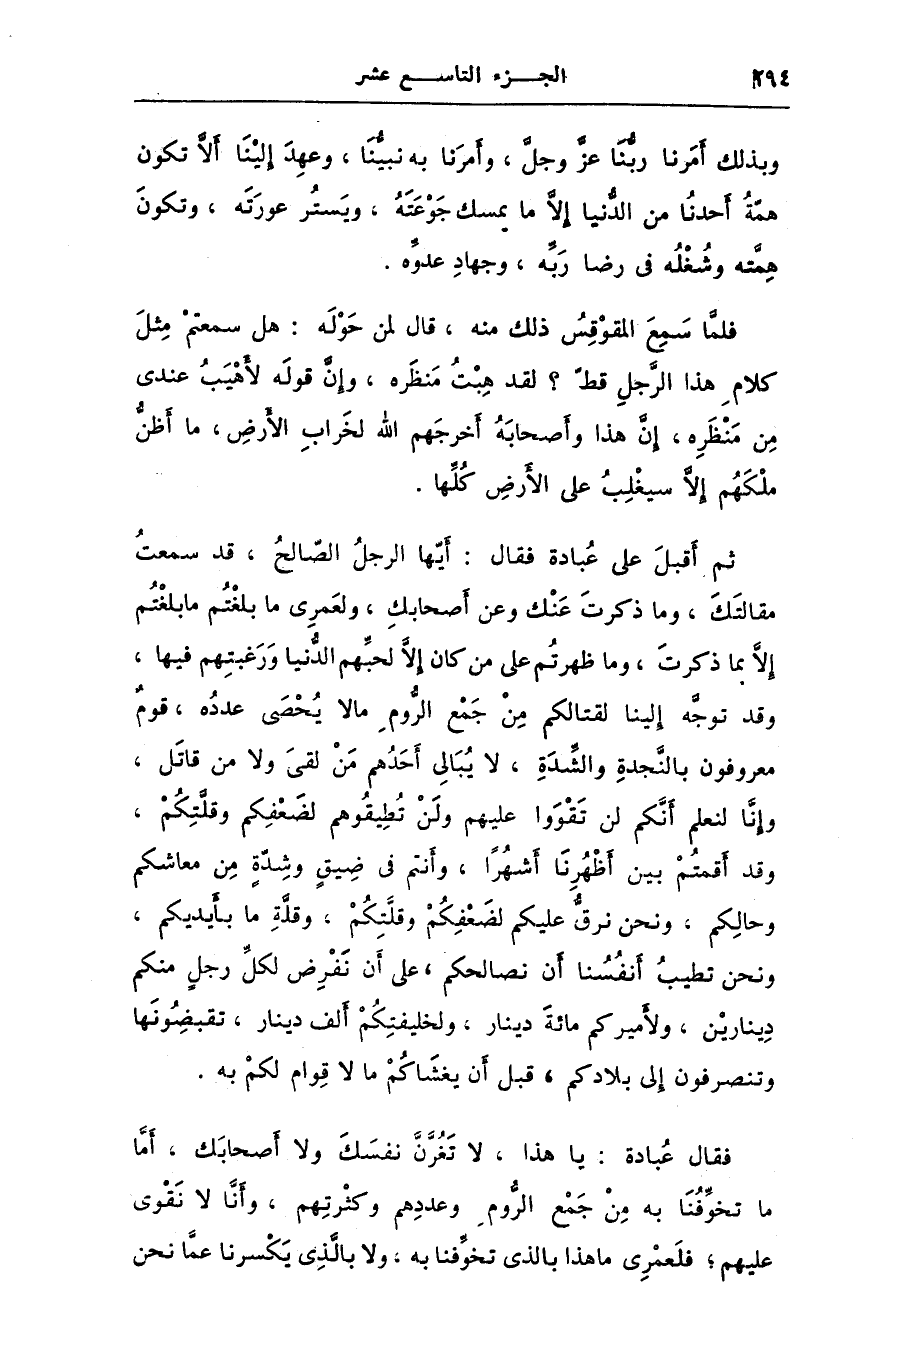 ٢٩٤ الجزء التاسع عشر
وبذلك أَمَرنا ربُّنَا عزَّ وجلَّ ، وأَمرَنا به نبيُّنَا ، وعهِدَ إليْنَا ألاَّ تكون
همّةُ أحدنُا من الدُّنيا إلاَّ ما يمسك جَوْعَتَهُ ، ويَستُر عورَتَه ، وتكونَ
هِمَّته وشُغْلُه فى رضا رَبِّه ، وجهادِ عدوِّه .
فلمَّا سَمِعَ المقوْقِسُ ذلك منه ، قال لمن حَوْلَه : هل سمعتمْ مِثلَ
كلامِ هذا الرَّجلِ قطّ ؟ لقد هِبْتُ مَنظَره ، وإنَّ قولَه لأَهْيَبُ عندى
مِن مَنْظَرِه ، إنَّ هذا وأصحابَهُ أخرجَهم الله لخَرابِ الأَرضِ ، ما أظنُّ
ملْكَهُم إلاَّ سيغْلِبُ على الأَرضِ كُلِّها .
ثم أَقبلَ على عُبادة فقال : أَيّها الرجلُ الصّالحُ ، قد سمعتُ
مقالتَكَ ، وما ذكرتَ عَنْك وعن أَصحابك ، ولعَمرِى ما بلغْتُم مابلغْتُم
إلاَّ بما ذكرتَ ، وما ظهرتُم على من كان إلاَّ لحبِّهم الدُّنيا وَرَغبتِهم فيها ،
وقد توجَّه إلينا لقتالكم مِنْ جَمْع الرُّومِ مالا يُحْصَى عددُه ، قومٌ
معروفون بالنَّجدةِ والشِّدَةِ ، لا يُبَالِى أَحَدُهم مَنْ لقىَ ولا من قاتَل ،
وإنَّا لنعلم أَنَّكم لن تَقْوَوا عليهم ولَنْ تُطِيقُوهم لضَعْفِكم وقلَّتِكُمْ ،
وقد أَقمتُمْ بين أَظْهُرِنَا أَشهُرًا ، وأَنتم فى ضِيقٍ وشِدّةٍ مِن معاشكم
وحالِكم ، ونحن نرقُّ عليكم لضَعْفِكُمْ وقلَّتِكُمْ ، وقلَّةِ ما بأَيديكم ،
ونحن تطيبُ أَنفُسُنا أن نصالحكم ، على أَن نَفْرِض لكلِّ رجلٍ منكم
دِينارَيْن ، ولأَميركم مائةَ دينار ، ولخليفتِكُمْ أَلف دينار ، تقبضِونَها
وتنصرفون إلى بلادكم ، قبل أن يغشَاكُمْ ما لا قِوام لكمْ به .
فقال عُبادة : يا هذا ، لا تَغُرَّنَّ نفسَكَ ولا أَصحابَك ، أَمَّا
ما تخوِّفُنَا به مِنْ جَمْع الرُّومِ وعددِهم وكثْرتِهم ، وأَنَّا لا نَقْوى
عليهم ؛ فلَعمْرِى ماهذا بالذى تخوِّفنا به ، ولا بالَّذِى يَكْسرنا عمَّا نحن